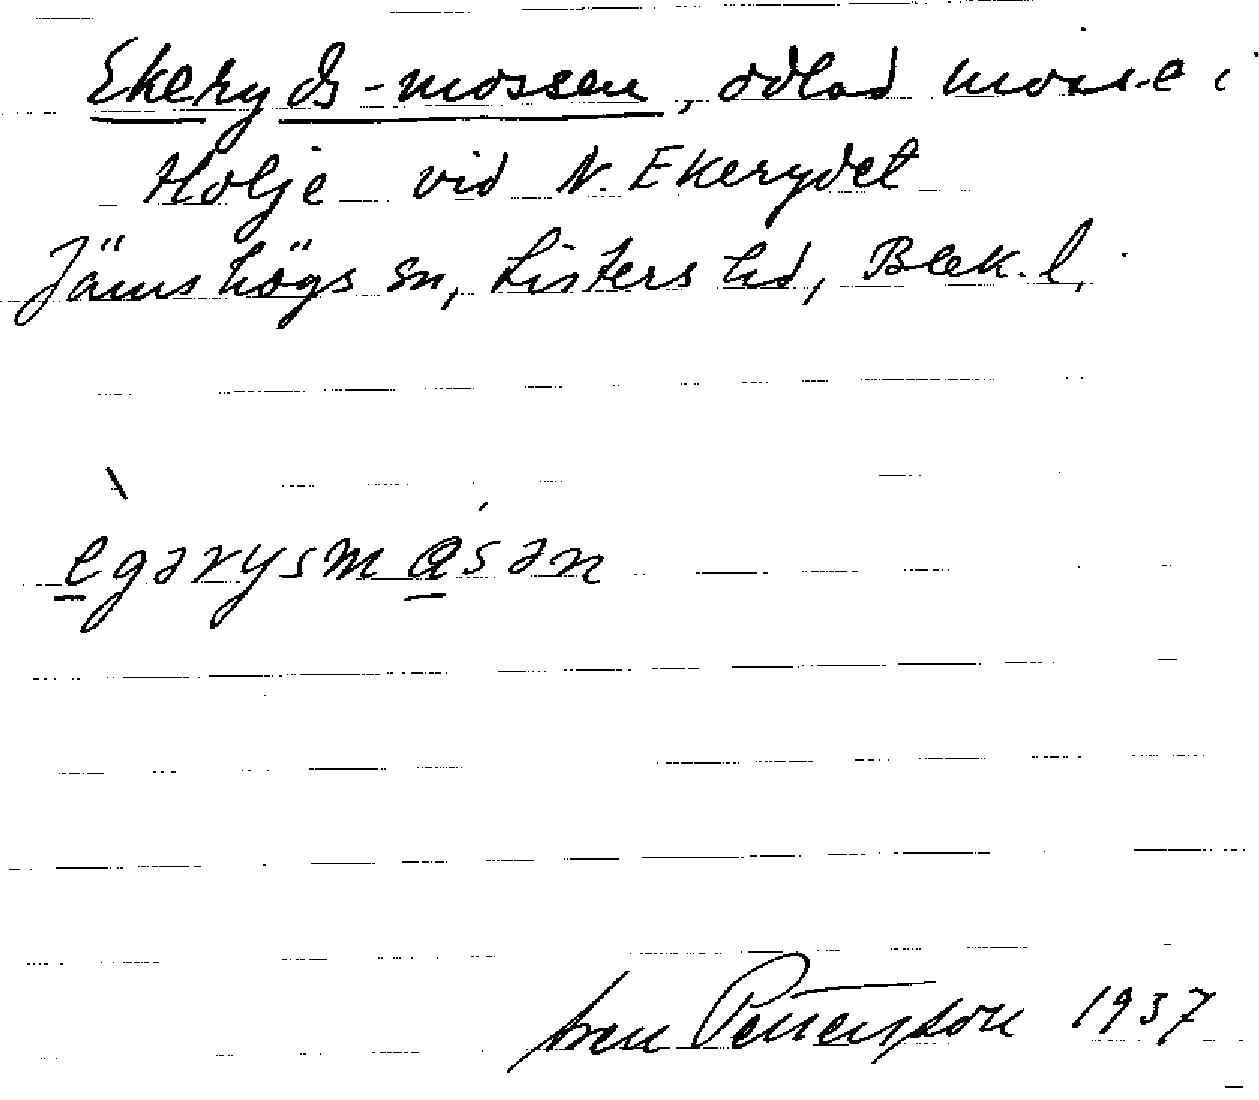 Ekeryds-mossen, odlad mosse i
Holje vid N. Ekerydet
Jämshögs sn, Listers hd, Blek. l.
ègərysmasən
Sven Pettersson 1937